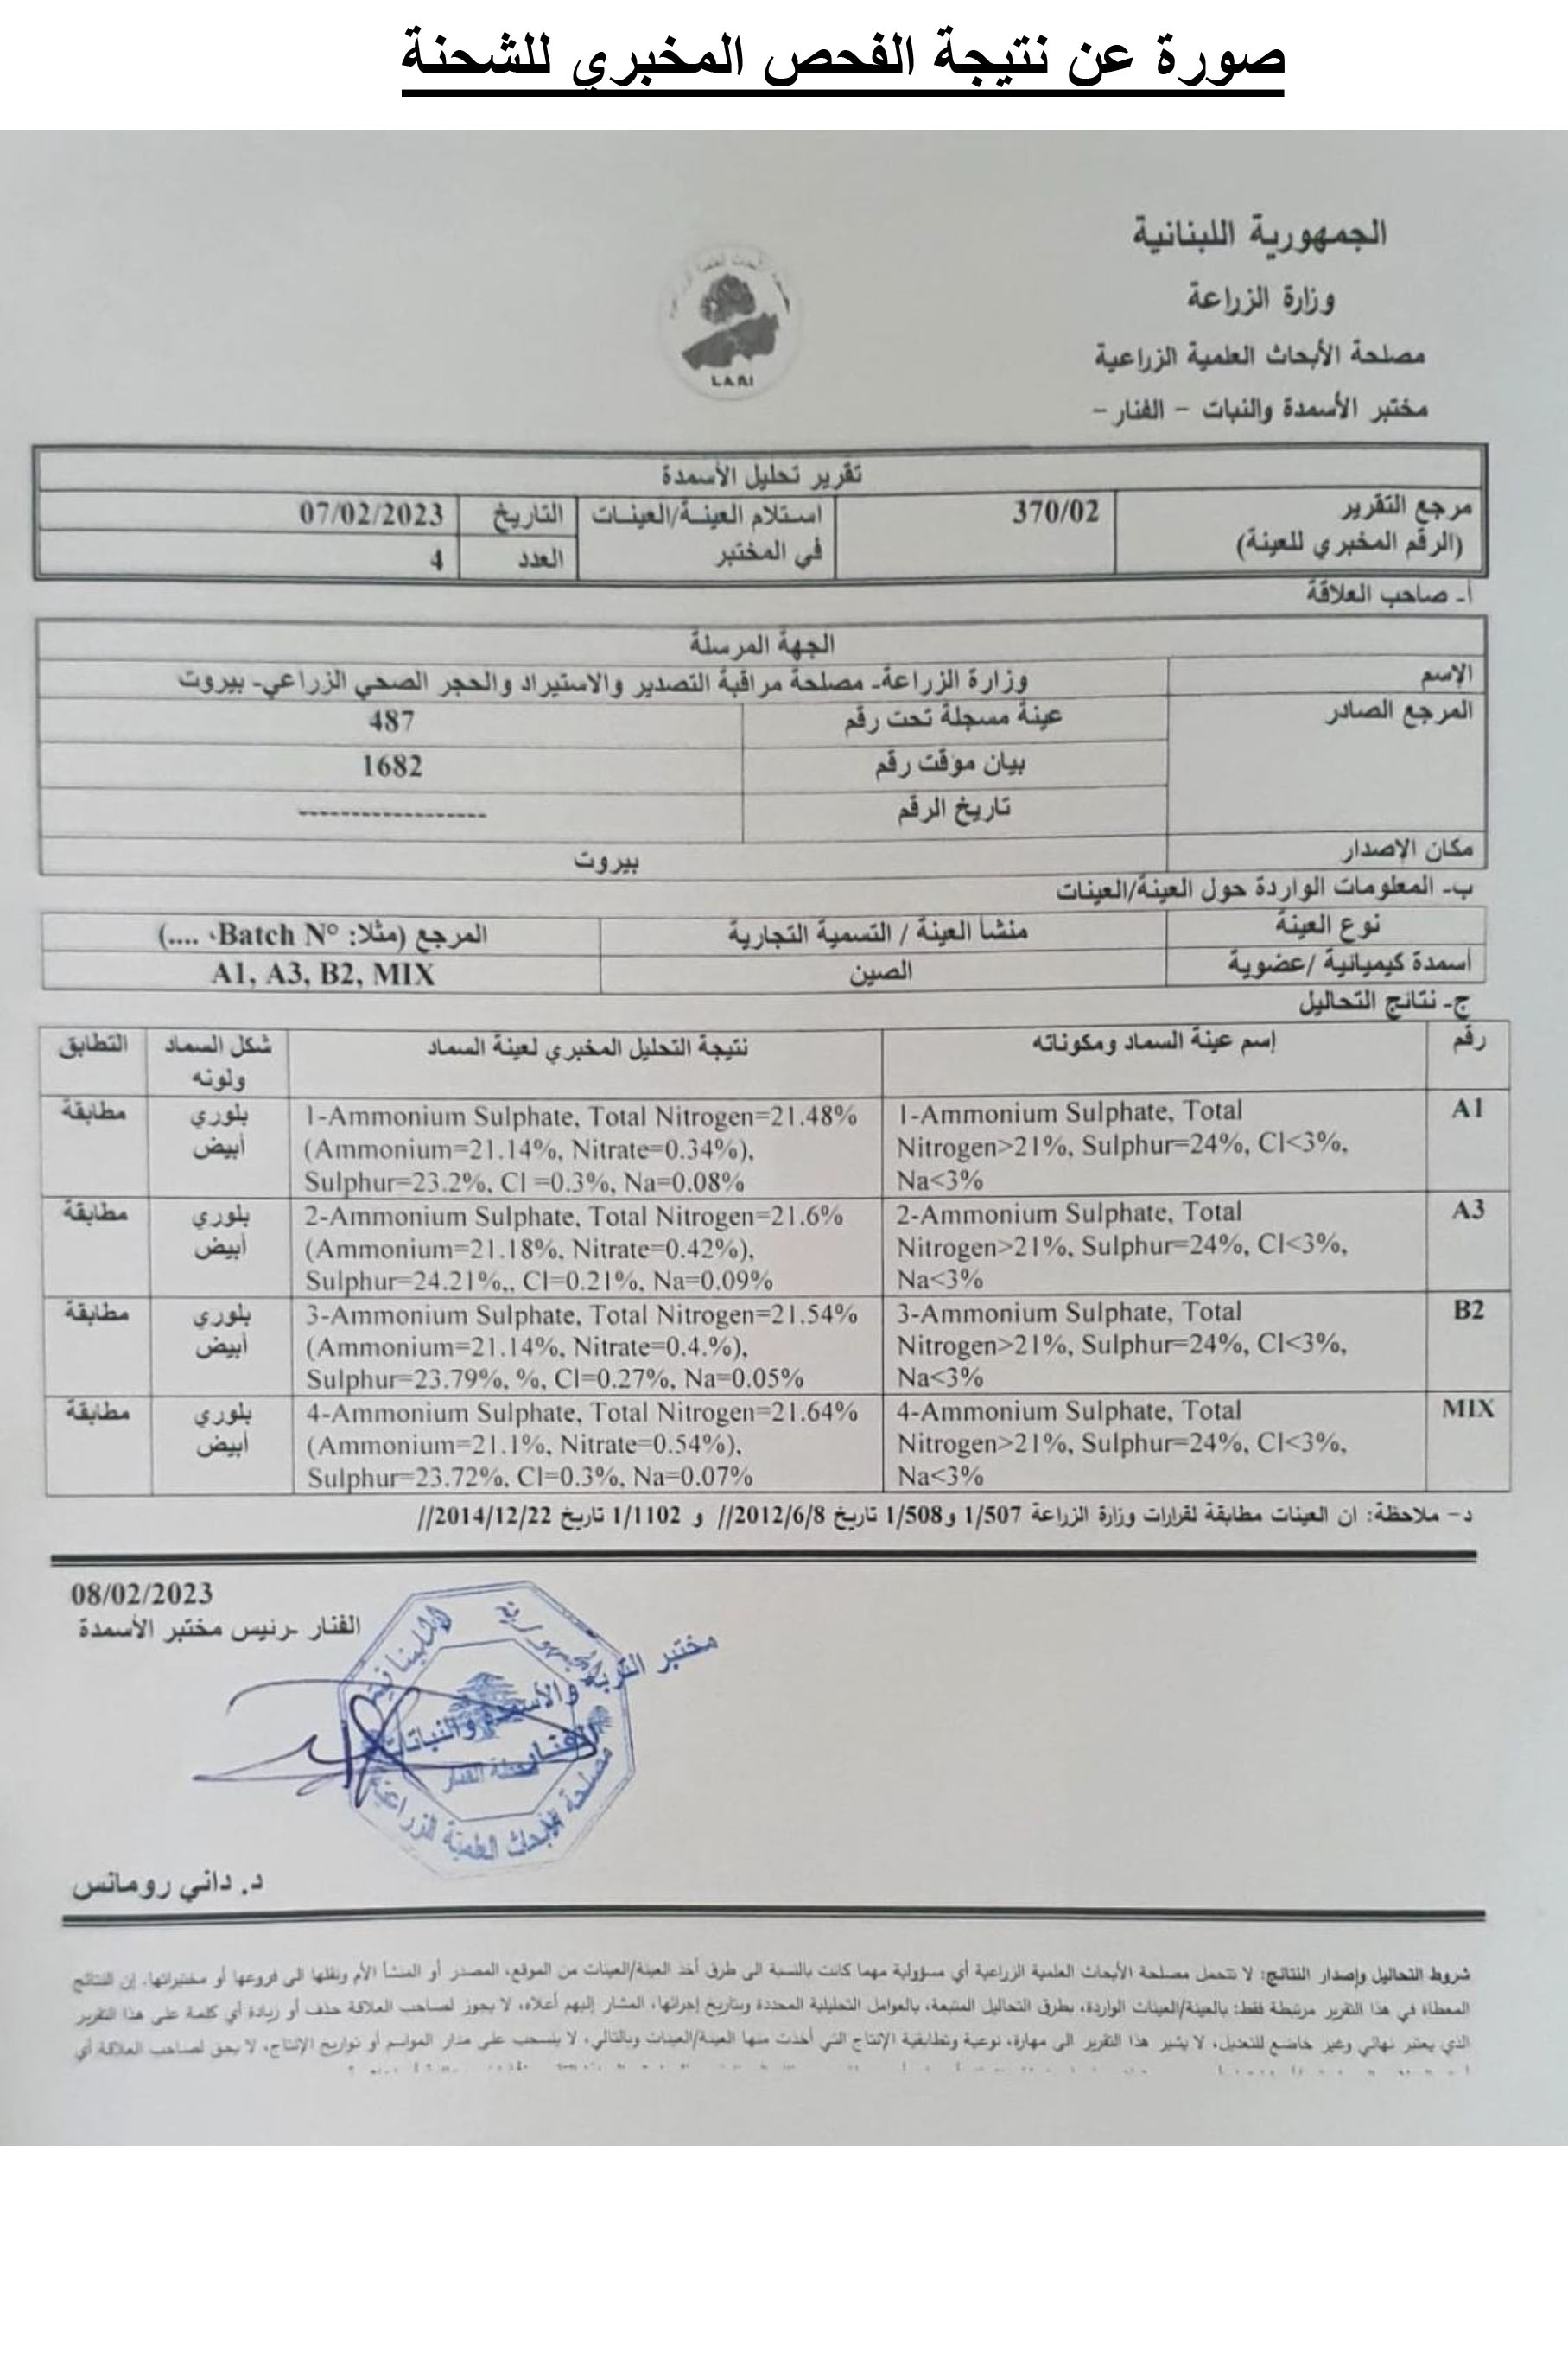 صورة عن نتيجة الفحص المخبري للشحنة
الجمهورية اللبنانية
وزارة الزراعة
مصلحة الأبحاث العلمية الزراعية
مختبر الأسمدة والنبات - الفنار -
LARI
تقرير تحليل الأسمدة
مرجع التقرير (الرقم المخبري للعينة) 370/02 استلام العينة/العينات في المختبر التاريخ 07/02/2023
العدد 4
أ- صاحب العلاقة
الجهة المرسلة
الإسم وزارة الزراعة- مصلحة مراقبة التصدير والاستيراد والحجر الصحي الزراعي- بيروت
المرجع الصادر عينة مسجلة تحت رقم 487
بيان موقت رقم 1682
تاريخ الرقم ------------------
مكان الإصدار بيروت
ب- المعلومات الواردة حول العينة/العينات
نوع العينة منشأ العينة / التسمية التجارية المرجع (مثلا: Batch N°، ....)
أسمدة كيميائية /عضوية الصين A1, A3, B2, MIX
ج- نتائج التحاليل
رقم إسم عينة السماد ومكوناته نتيجة التحليل المخبري لعينة السماد شكل السماد ولونه التطابق
A1
1-Ammonium Sulphate, Total
Nitrogen>21%, Sulphur=24%, Cl<3%,
Na<3%
1-Ammonium Sulphate, Total Nitrogen=21.48%
(Ammonium=21.14%, Nitrate=0.34%),
Sulphur=23.2%, Cl =0.3%, Na=0.08%
بلوري
أبيض
مطابقة
A3
2-Ammonium Sulphate, Total
Nitrogen>21%, Sulphur=24%, Cl<3%,
Na<3%
2-Ammonium Sulphate, Total Nitrogen=21.6%
(Ammonium=21.18%, Nitrate=0.42%),
Sulphur=24.21%,, Cl=0.21%, Na=0.09%
بلوري
أبيض
مطابقة
B2
3-Ammonium Sulphate, Total
Nitrogen>21%, Sulphur=24%, Cl<3%,
Na<3%
3-Ammonium Sulphate, Total Nitrogen=21.54%
(Ammonium=21.14%, Nitrate=0.4.%),
Sulphur=23.79%, %, Cl=0.27%, Na=0.05%
بلوري
أبيض
مطابقة
MIX
4-Ammonium Sulphate, Total
Nitrogen>21%, Sulphur=24%, Cl<3%,
Na<3%
4-Ammonium Sulphate, Total Nitrogen=21.64%
(Ammonium=21.1%, Nitrate=0.54%),
Sulphur=23.72%, Cl=0.3%, Na=0.07%
بلوري
أبيض
مطابقة
د- ملاحظة: ان العينات مطابقة لقرارات وزارة الزراعة 1/507 و1/508 تاريخ 2012/6/8// و 1/1102 تاريخ 2014/12/22//
08/02/2023
الفنار -رئيس مختبر الأسمدة
مختبر التربة والأسمدة والنباتات
الفنار
الجمهورية اللبنانية
محطة الفنار
مصلحة الأبحاث العلمية الزراعية
د. داني رومانس
شروط التحاليل وإصدار النتائج: لا تتحمل مصلحة الأبحاث العلمية الزراعية أي مسؤولية مهما كانت بالنسبة الى طرق أخذ العينة/العينات من الموقع، المصدر أو المنشأ الأم ونقلها الى فروعها أو مختبراتها. إن النتائج
المعطاة في هذا التقرير مرتبطة فقط: بالعينة/العينات الواردة، بطرق التحاليل المتبعة، بالعوامل التحليلية المحددة وبتاريخ إجرائها، المشار إليهم أعلاه، لا يجوز لصاحب العلاقة حذف أو زيادة أي كلمة على هذا التقرير
الذي يعتبر نهائي وغير خاضع للتعديل، لا يشير هذا التقرير الى مهارة، نوعية وتطابقية الإنتاج التي أخذت منها العينة/العينات وبالتالي، لا ينسحب على مدار المواسم أو تواريخ الإنتاج، لا يحق لصاحب العلاقة أي